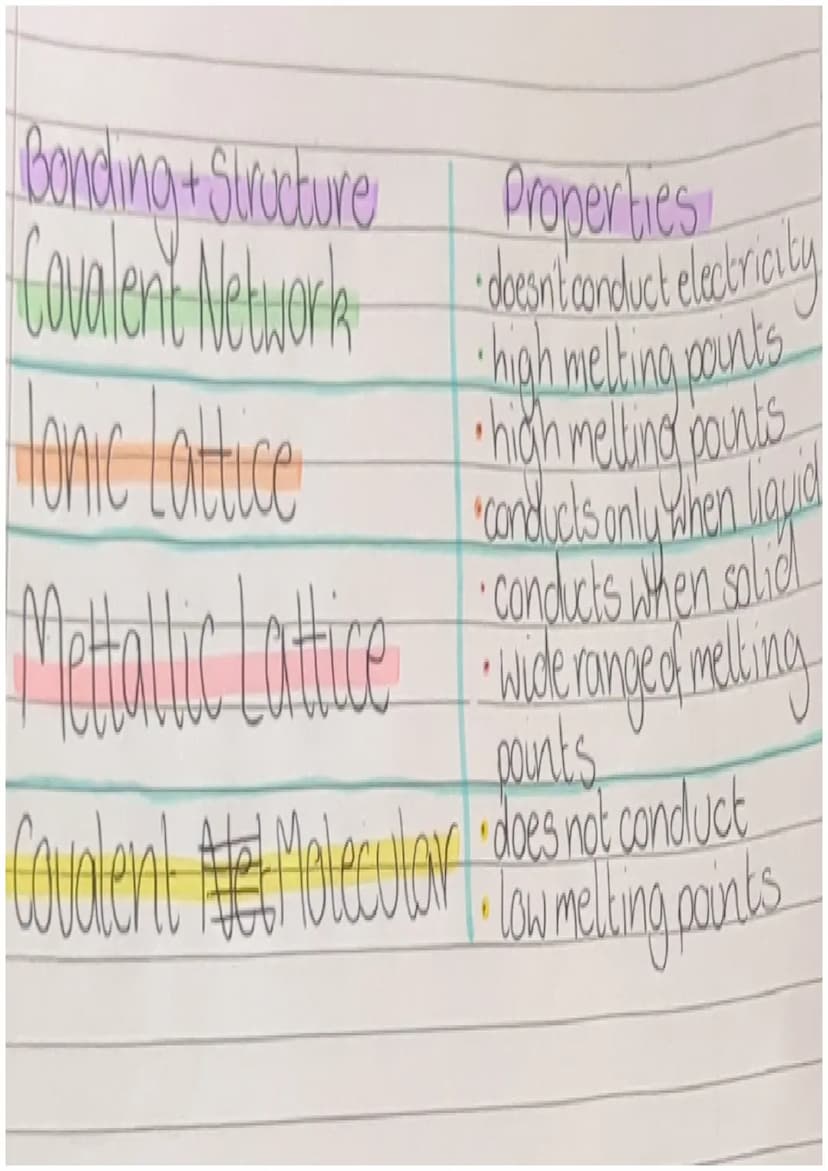 Bonding + Structure
Properties
Covalent Network
• doesn't conduct electricity
• high melting points
Ionic Lattice
• high melting points
• conducts only when liquid
Mettallic Lattice
• conducts when solid
• wide range of melting
points
Covalent Molecular
• does not conduct
• low melting points